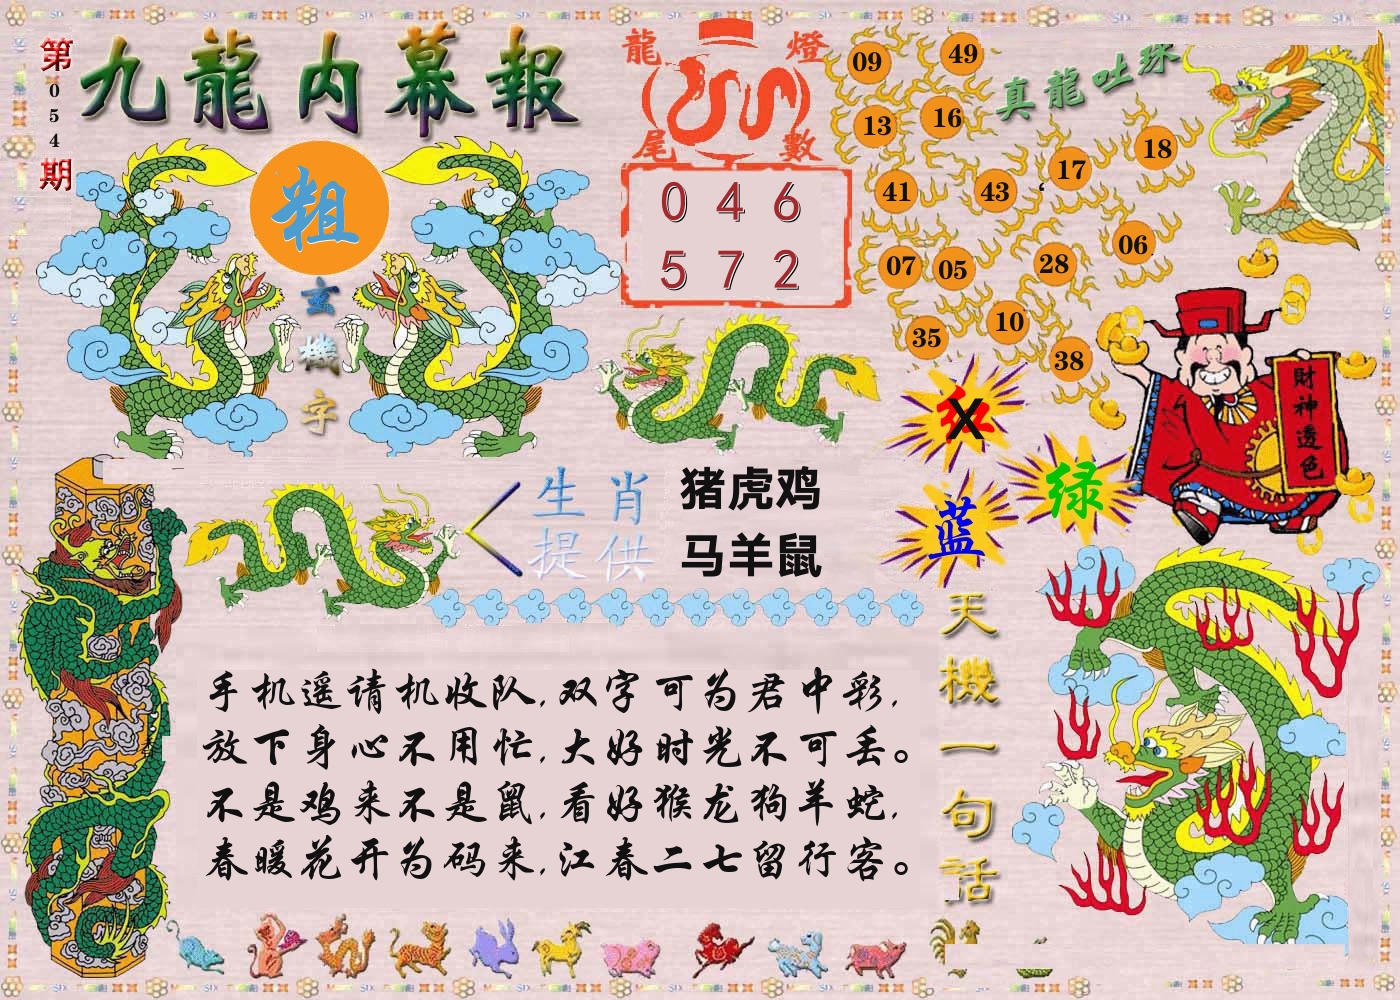 第054期
九龍内幕報
粗
玄機字
龍燈尾數
046
572
09 49
13 16
41 43 17 18
07 05 28 06
35 10 38
真龍吐珠
財神透色
红
X
绿
蓝
生肖提供
猪虎鸡
马羊鼠
手机遥请机收队,双字可为君中彩,
放下身心不用忙,大好时光不可丢。
不是鸡来不是鼠,看好猴龙狗羊蛇,
春暖花开为码来,江春二七留行客。
天機一句話